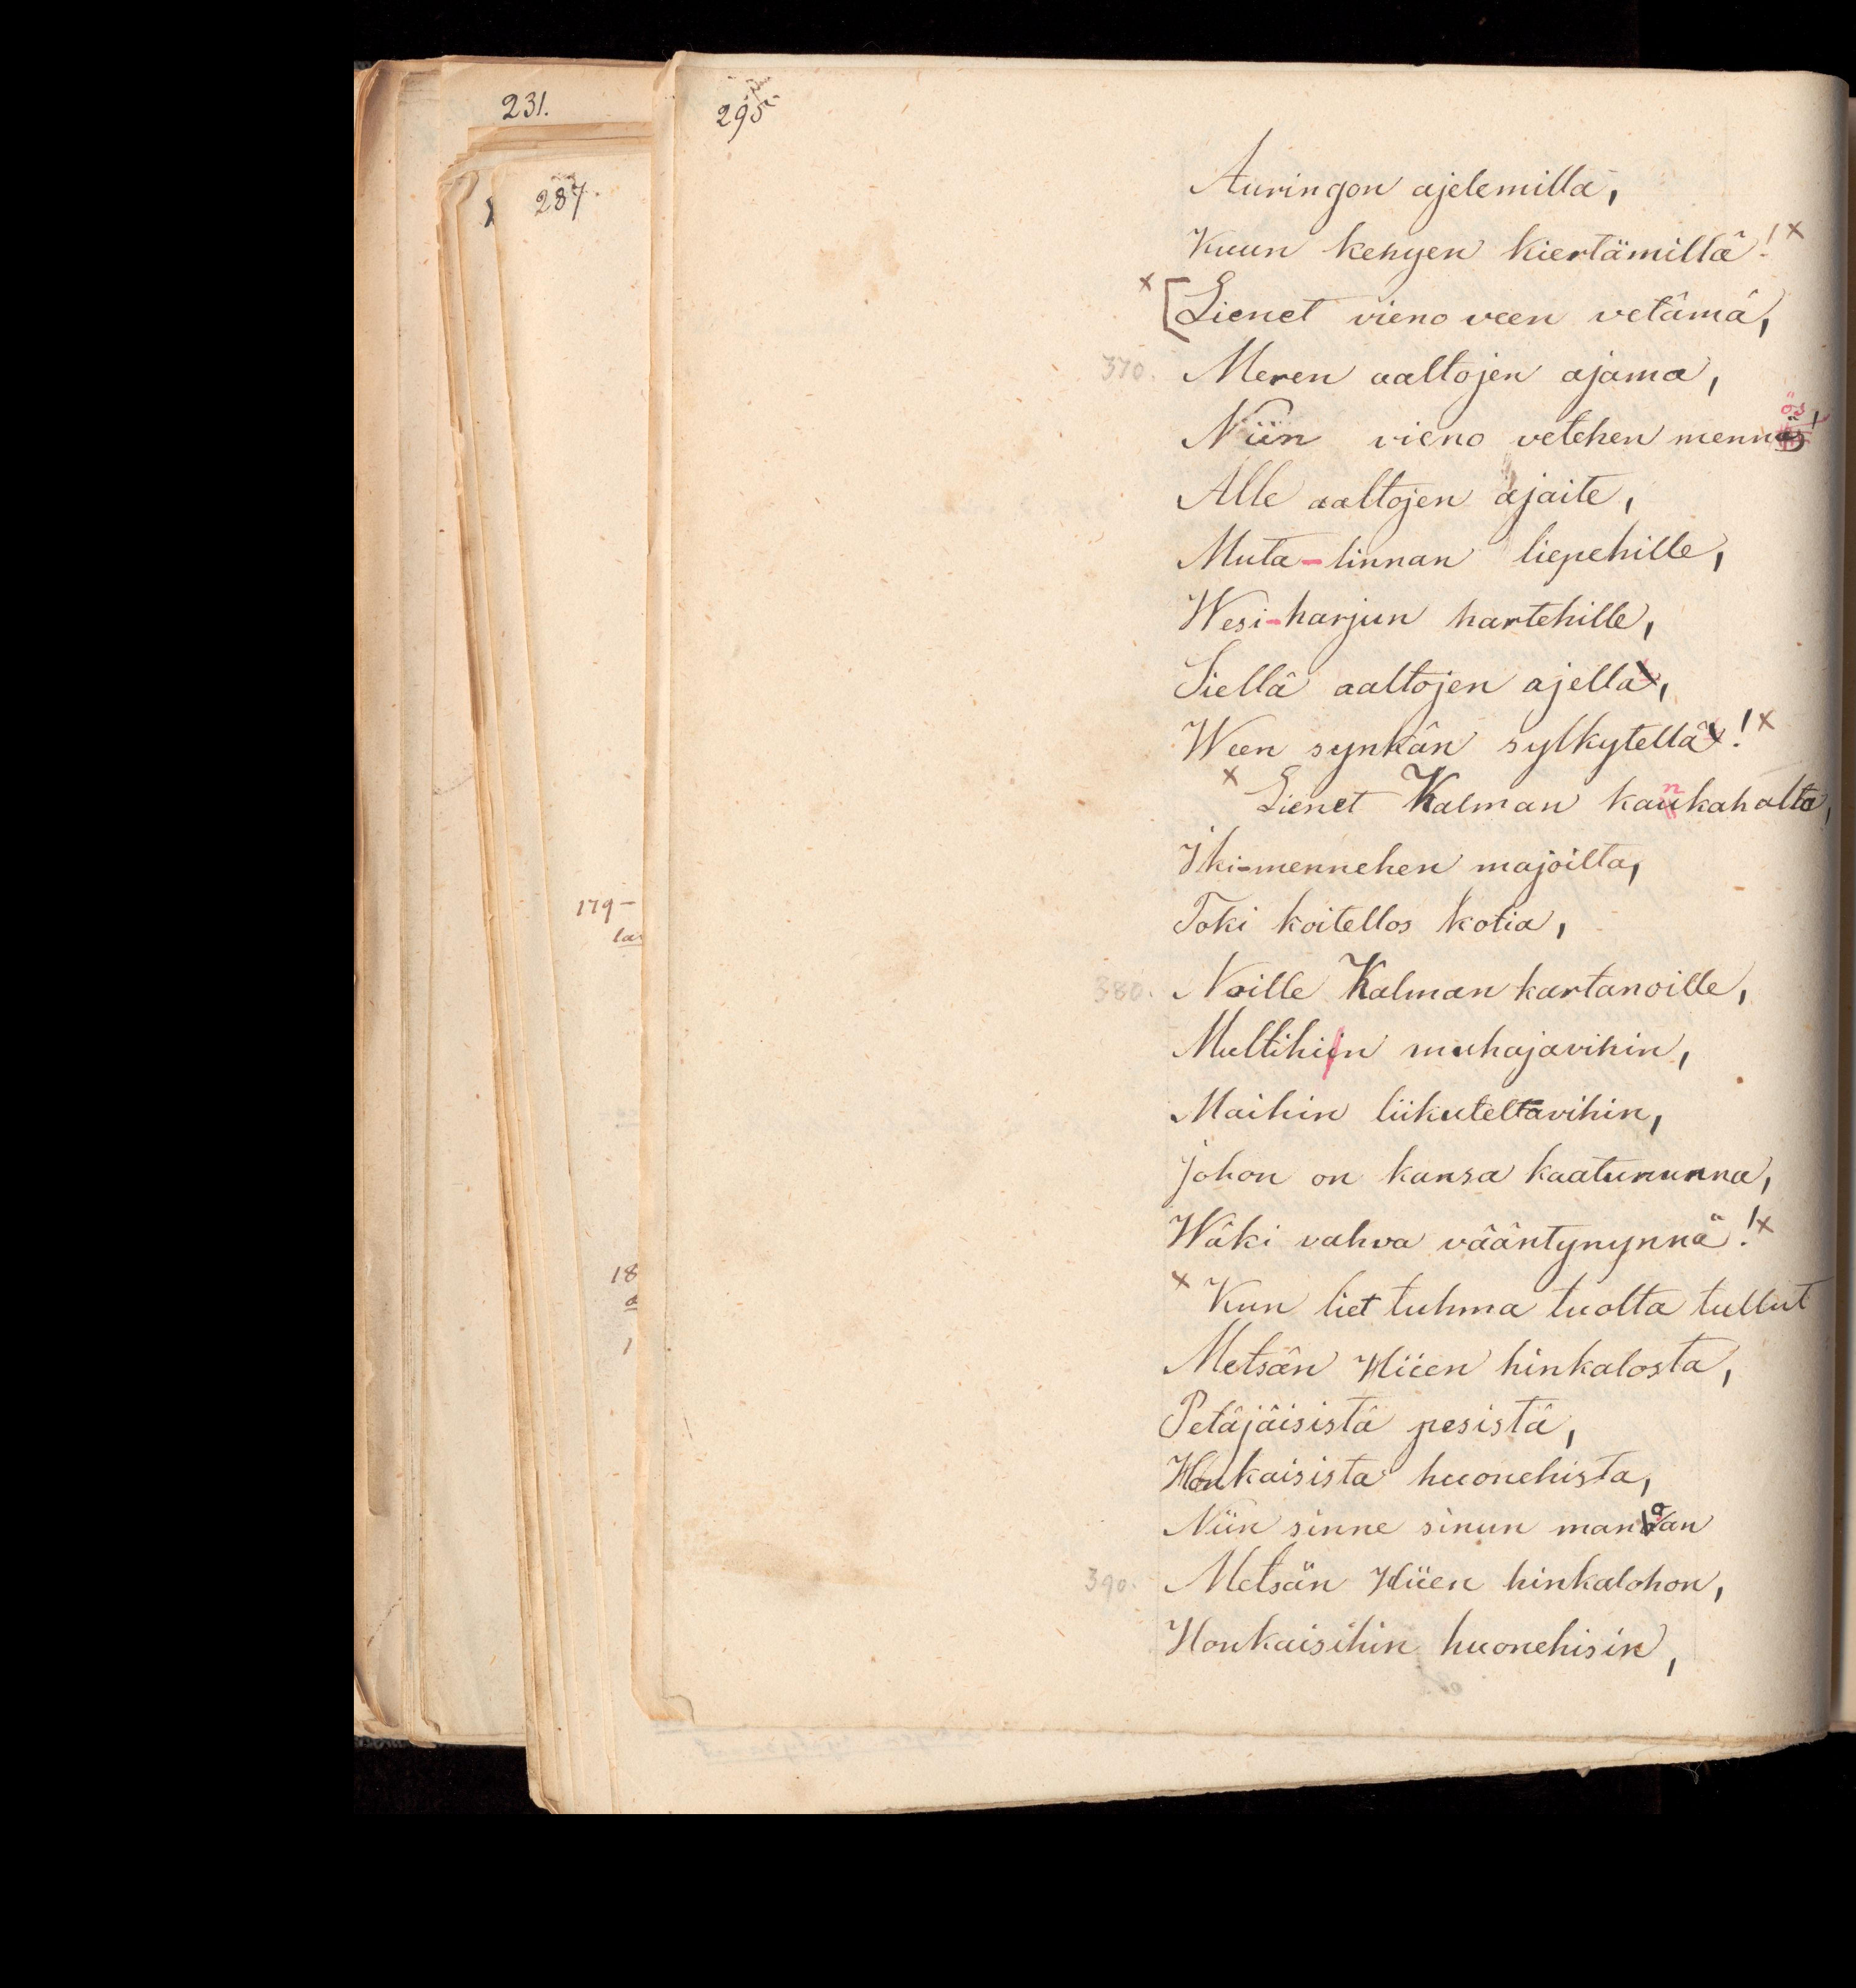 231.
295.
287.
Auringon ajelemilla,
Kuun kehyen kiertämillä! x
x [Lienet vieno veen vetämä,
370. Meren aaltojen ajama,
Niin vieno vetehen mennös!
Alle aaltojen ajaite,
Muta-linnan liepehille,
Wesi-harjun hartehille,
Siellä aaltojen ajella,
Ween synkän sylkytellä! x
x Lienet Kalman kankahalta,
Iki-mennehen majoilta,
Toki koitellos kotia,
380. Noille Kalman kartanoille,
Multihin muhajavihin,
Maihin liikuteltavihin,
Johon on kansa kaatununna,
Wäki vahva vääntynynnä! x
x Kun liet tuhma tuolta tullut
Metsän Hiien hinkalosta,
Petäjäisistä pesistä,
Honkaisista huonehista,
Niin sinne sinun manaan
390. Metsän Hiien hinkalohon,
Honkaisihin huonehisin,
179-
18
1